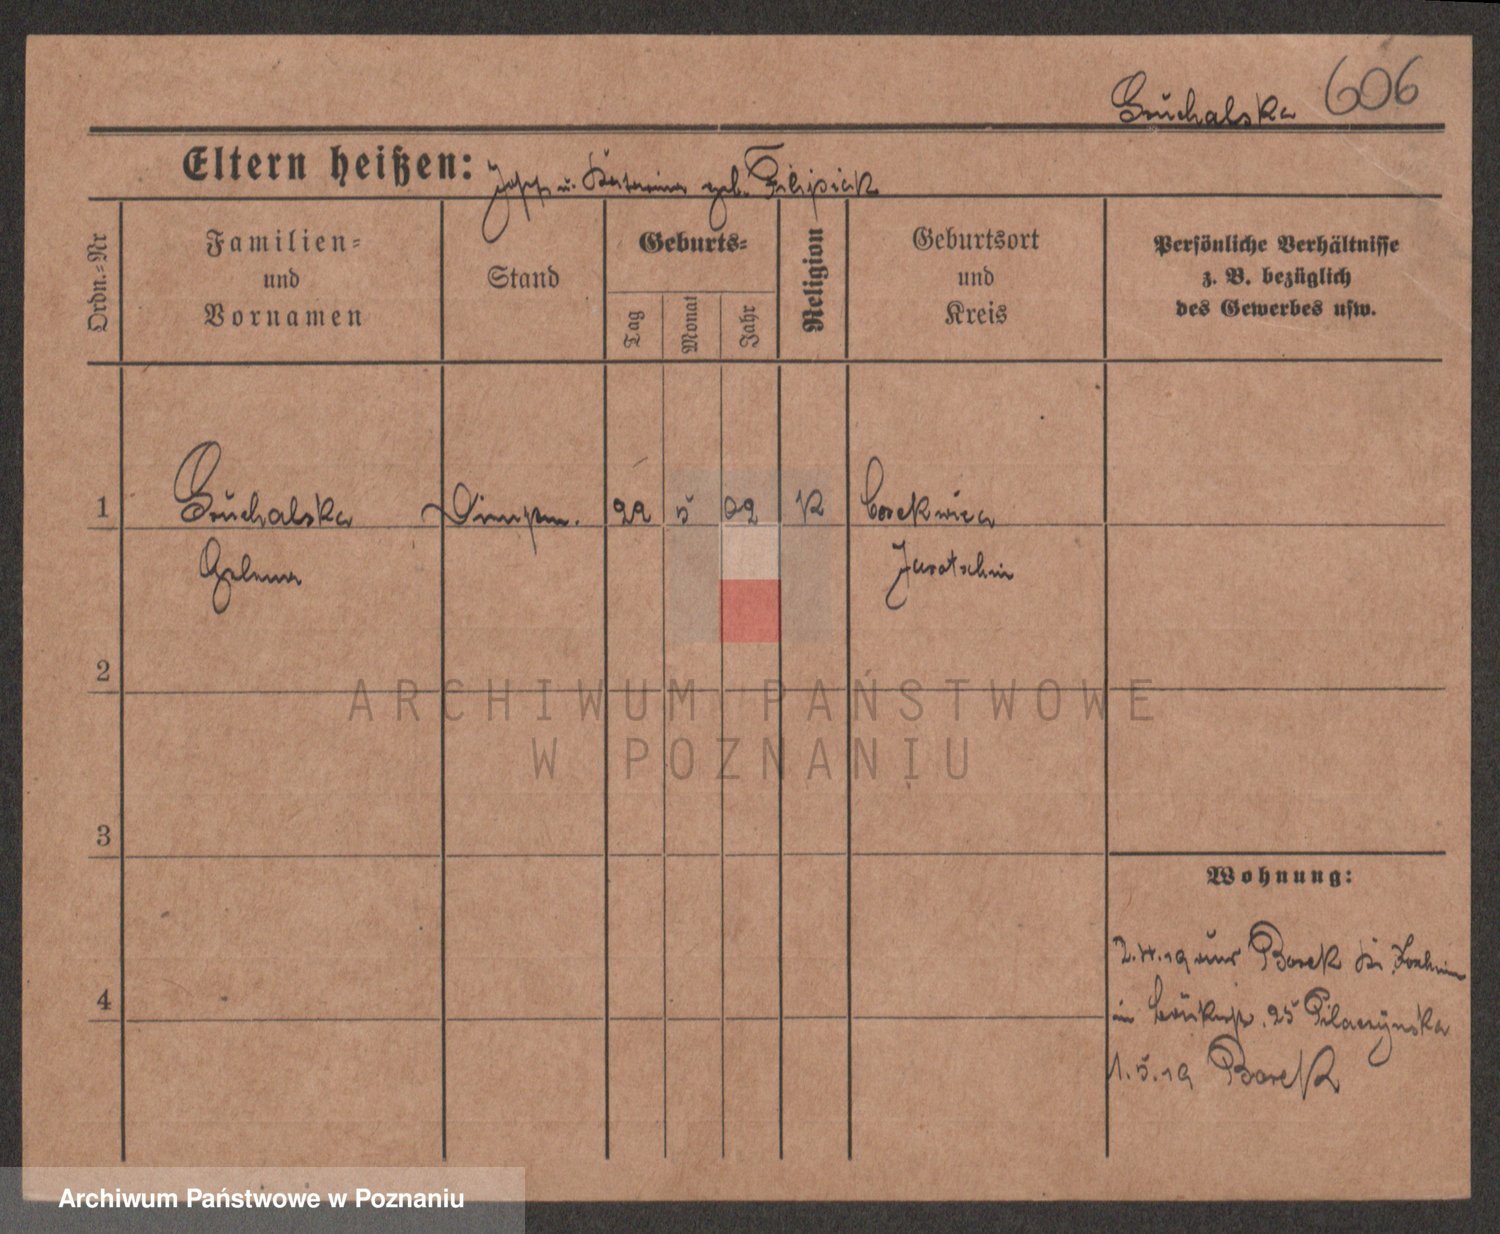 Gruchalska 606
Eltern heißen: Josef u. Katarina geb. Filipiak
Ordn.=Nr
Familien=
und
Vornamen
Stand
Geburts=
Tag
Monat
Jahr
Religion
Geburtsort
und
Kreis
Persönliche Verhältnisse
z. B. bezüglich
des Gewerbes usw.
1 Gruchalska 22 5 02 K
Helena Jarotschin
2
ARCHIWUM PAŃSTWOWE
W POZNANIU
3
Wohnung:
aus Borek Kr.
4
in 25 Pilaczynska
1.5.19 Borek
Archiwum Państwowe w Poznaniu